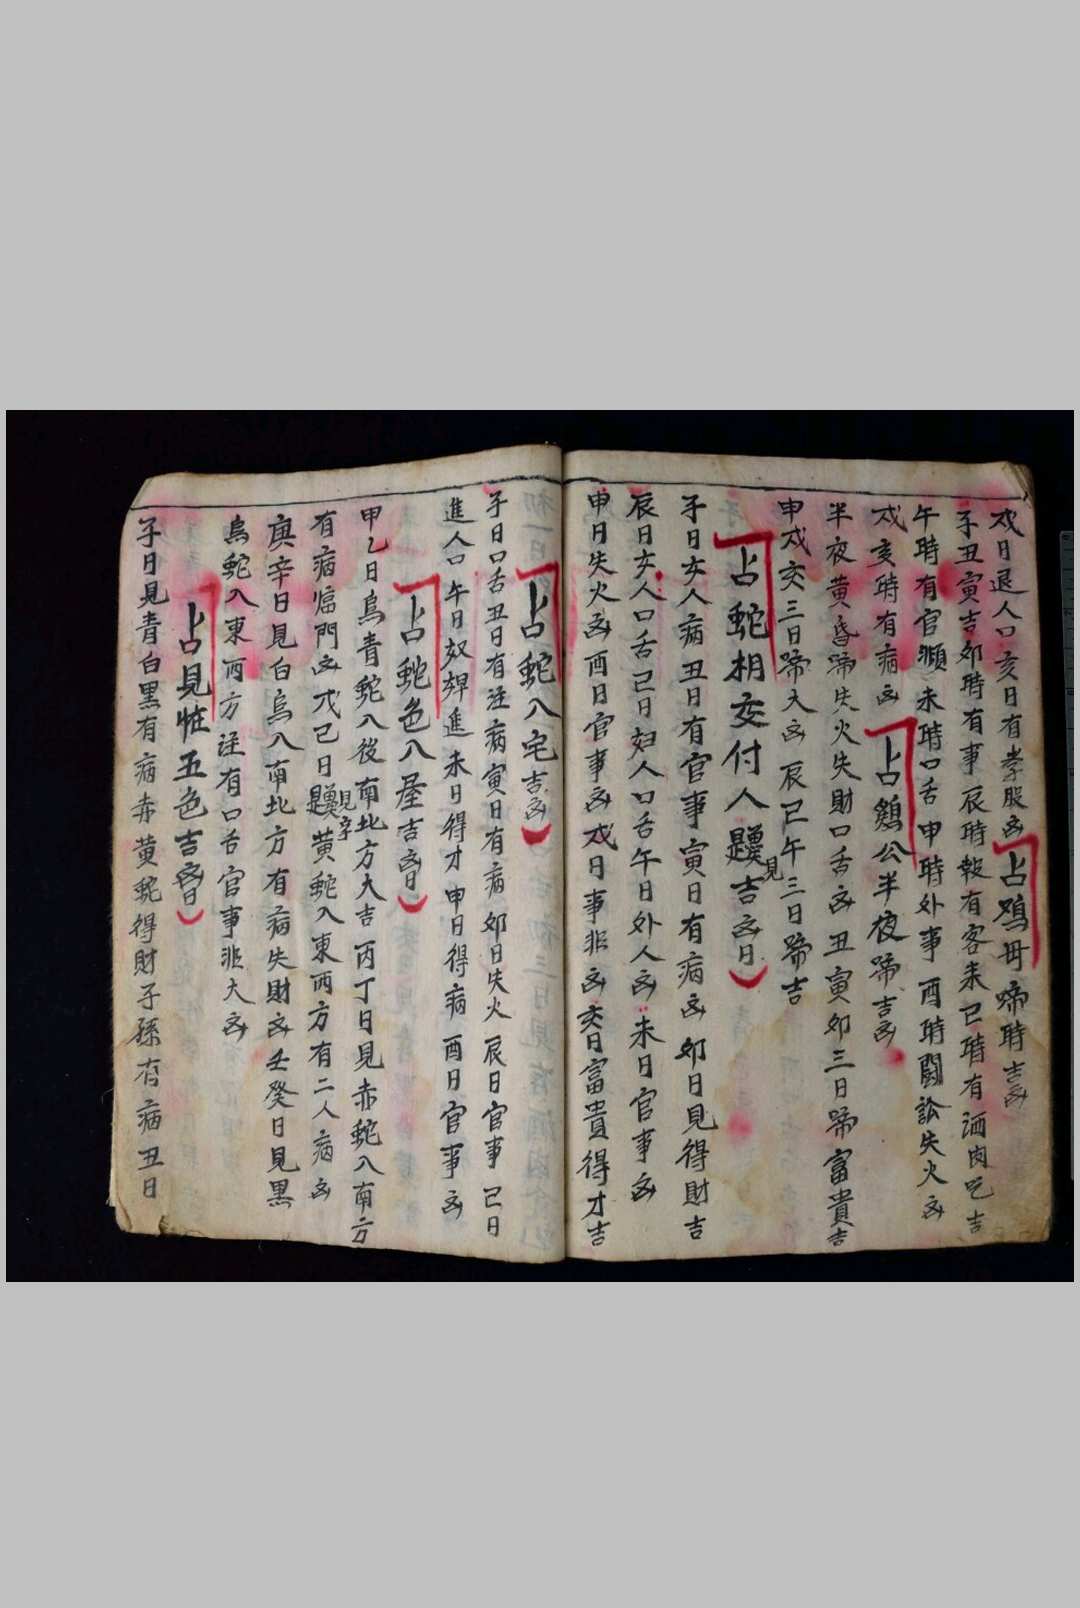 戌日退人口亥日有孝服凶 占鸡母啼時吉凶
子丑寅吉卯時有事辰時報有客来巳時有酒肉吃吉
午時有官 未時口舌申時外事酉時鬪訟失火凶
戌亥時有病凶 占鷄公半夜啼吉凶
半夜黄昏啼失火失財口舌凶丑寅卯三日啼富貴吉
申戌亥三日啼大凶辰巳午三日啼吉
占蛇相交付人見吉凶日
子日女人病丑日有官事寅日有病凶卯日見得財吉
辰日女人口舌己日妇人口舌午日外人凶未日官事凶
申日失火凶酉日官事凶戌日事非凶亥日富貴得才吉
占蛇入宅吉凶
子日口舌丑日有注病寅日有病卯日失火辰日官事己日
進人口午日奴婢進未日得才申日得病酉日官事凶
占蛇色入屋吉凶日
甲乙日烏青蛇入後南北方大吉丙丁日見赤蛇入南方
有病臨門凶戊己日見字黄蛇入東西方有二人病凶
庚辛日見白烏入南北方有病失財凶壬癸日見黑
烏蛇入東西方注有口舌官事非大凶
占見怪五色吉凶日
子日見青白黑有病赤黄蛇得財子孫有病丑日